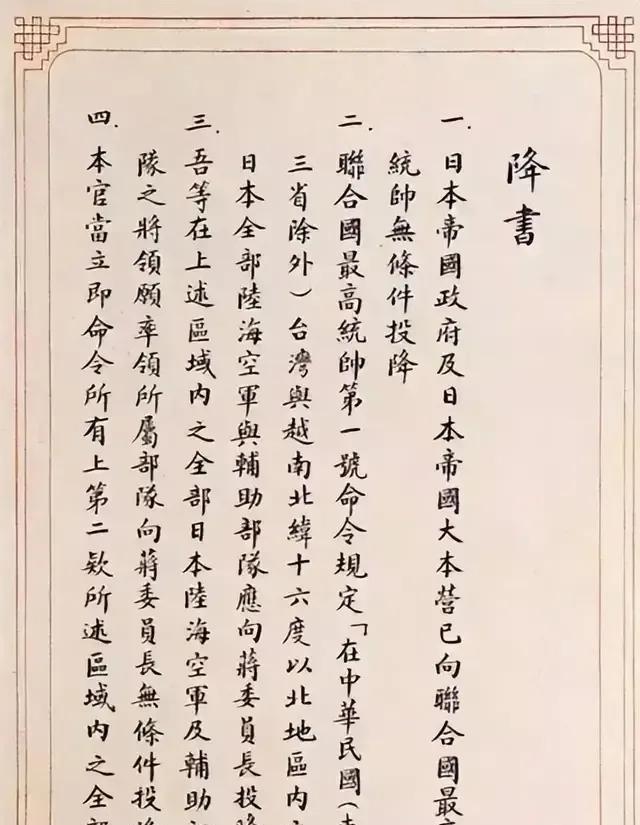 降書
一. 日本帝國政府及日本帝國大本營已向聯合國最
統帥無條件投降
二. 聯合國最高統帥第一號命令規定「在中華民國(
三省除外)台灣與越南北緯十六度以北地區內
日本全部陸海空軍與輔助部隊應向蔣委員長投
三. 吾等在上述區域內之全部日本陸海空軍及輔助
隊之將領願率領所屬部隊向蔣委員長無條件投
四. 本官當立即命令所有上第二欵所述區域內之全